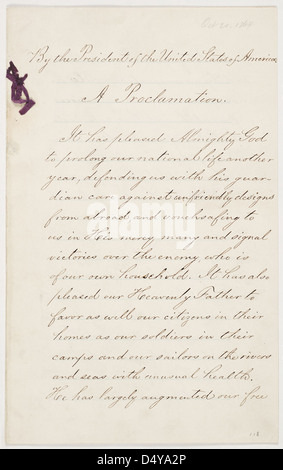 Oct 20, 1864
By the President of the United States of America
A Proclamation.
It has pleased Almighty God
to prolong our national life another
year, defending us with his guar-
dian care against unfriendly designs
from abroad, and vouchsafing to
us in His mercy many and signal
victories over the enemy, who is
of our own household. It has also
pleased our Heavenly Father to
favor as well our citizens in their
homes as our soldiers in their
camps and our sailors on the rivers
and seas with unusual health.
He has largely augmented our free
alamy
alamy
Image ID: D4YA2P
www.alamy.com